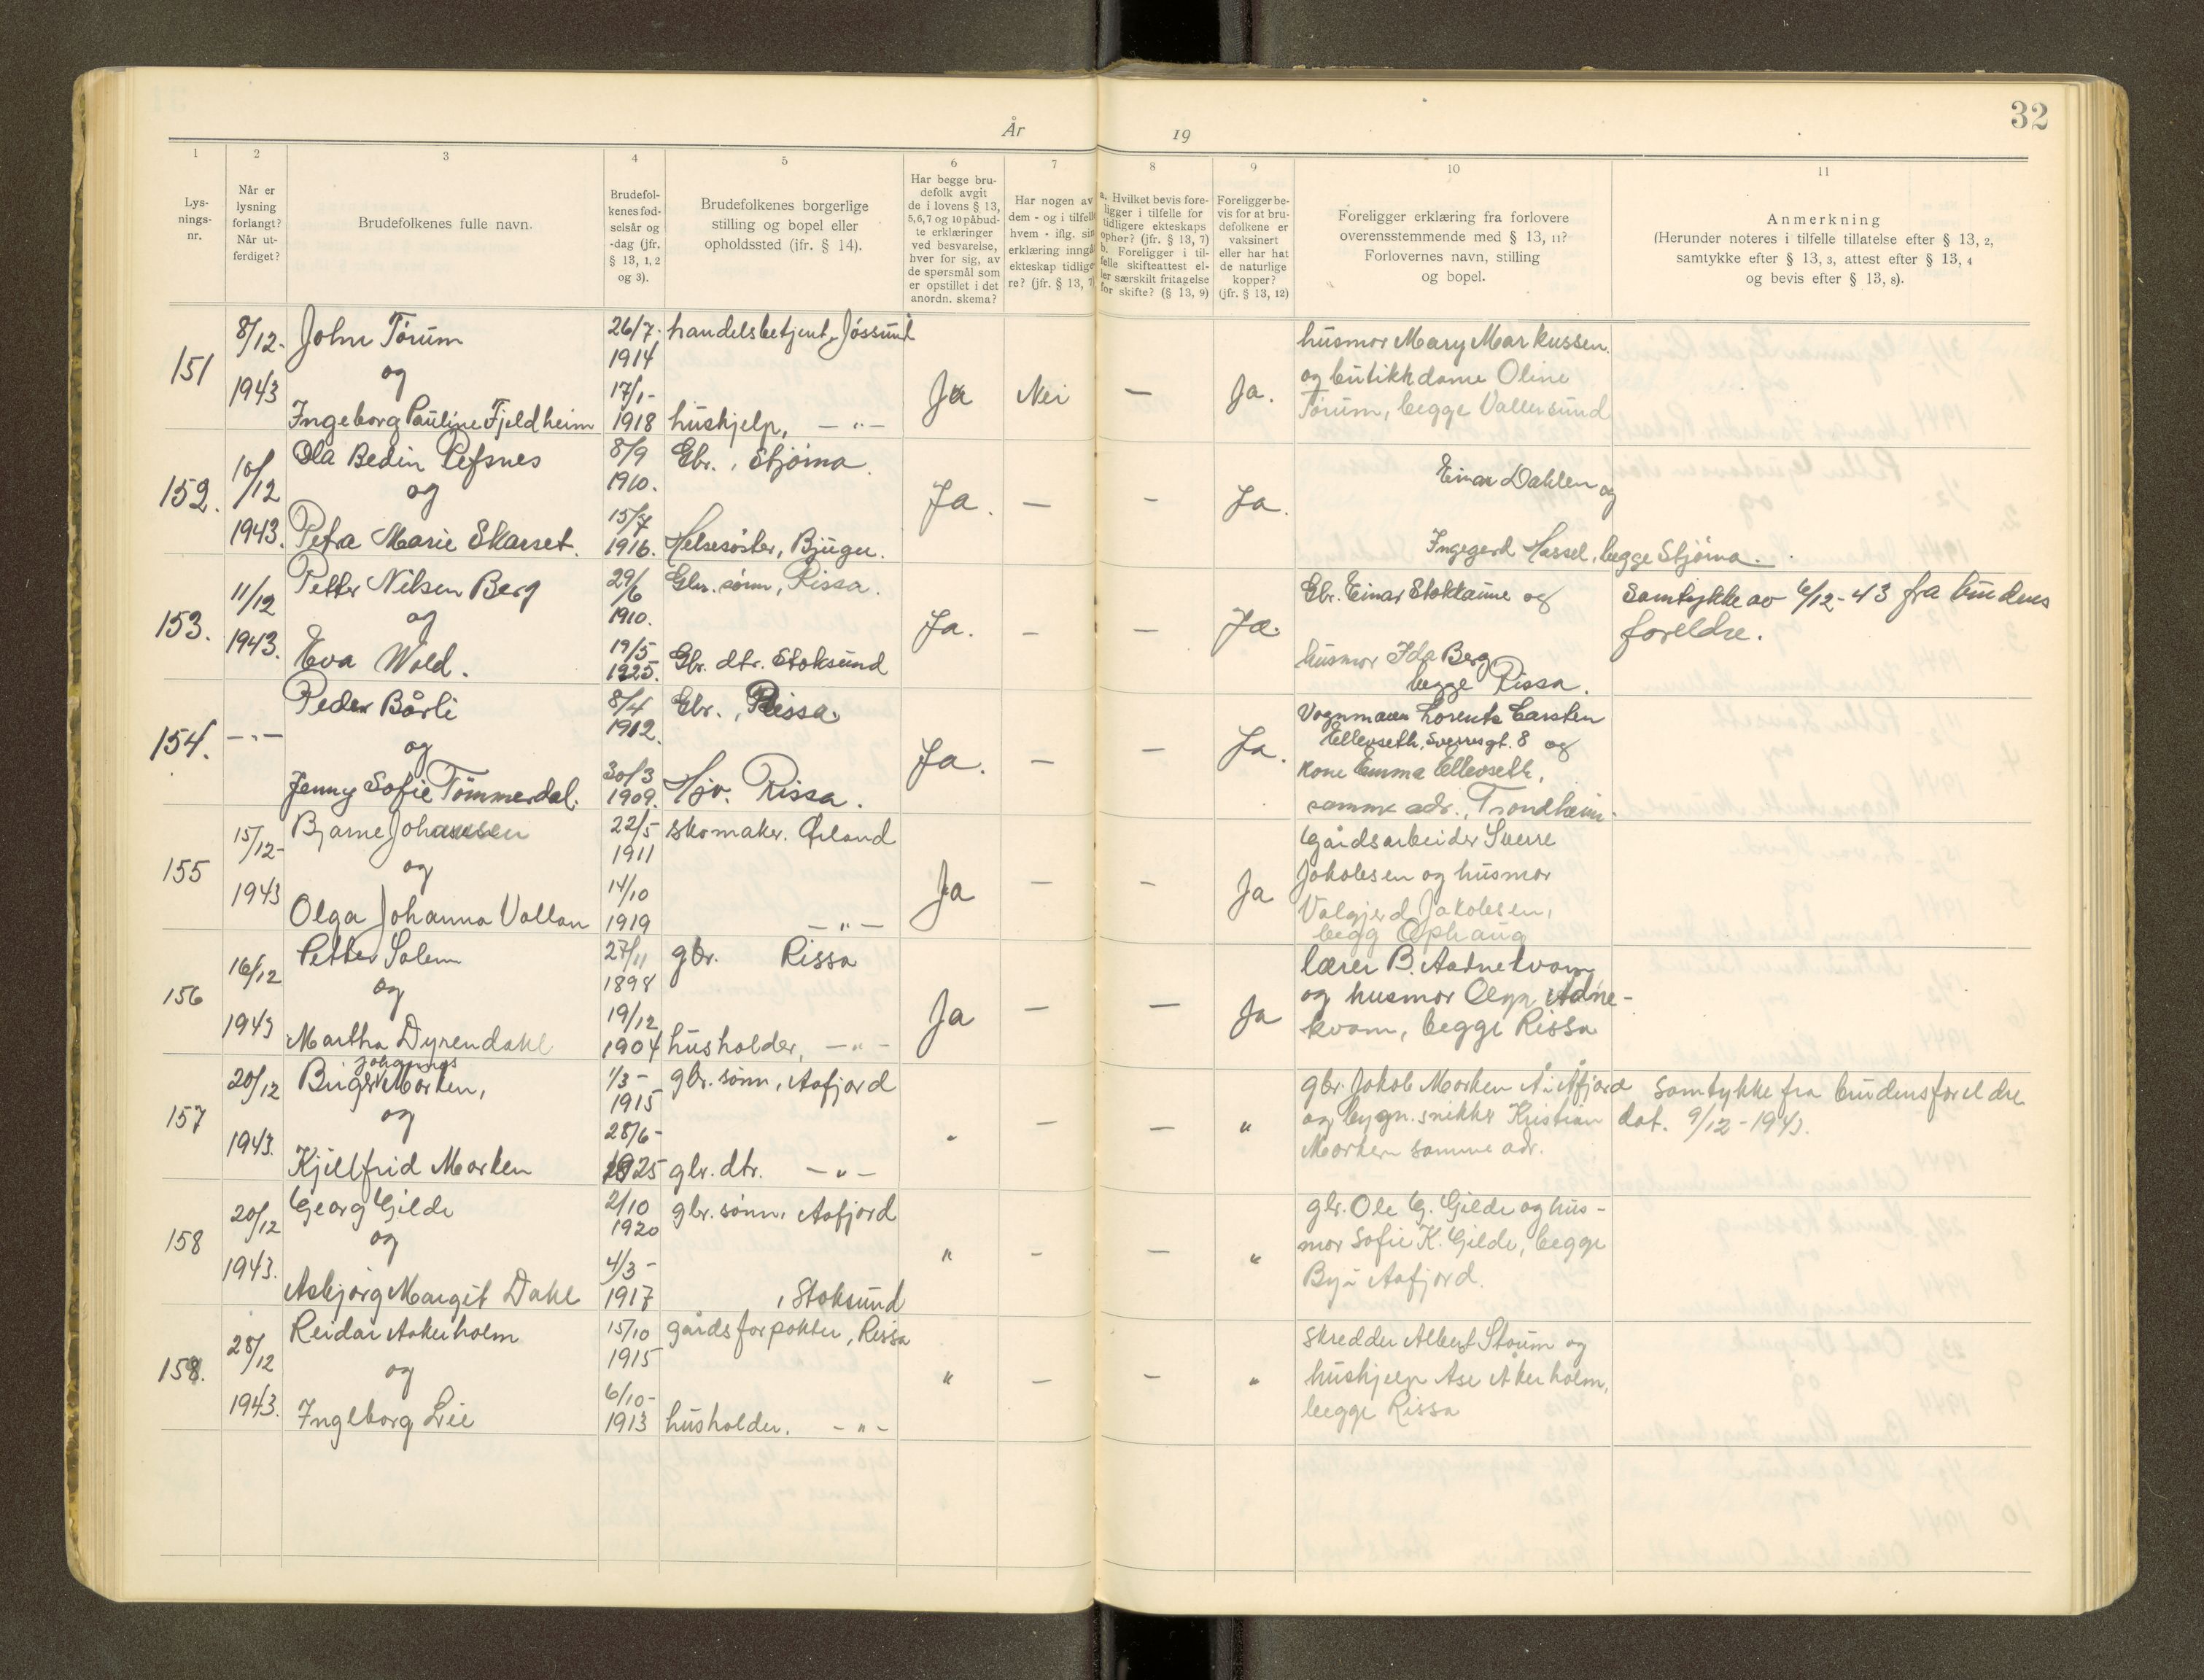 32
År 19
1 2 3 4 5 6 7 8 9 10 11
Lys-
nings-
nr.
Når er
lysning
forlangt?
Når ut-
ferdiget?
Brudefolkenes fulle navn.
Brudefol-
kenes fød-
selsår og
-dag (jfr.
§ 13, 1, 2
og 3).
Brudefolkenes borgerlige
stilling og bopel eller
opholdssted (jfr. § 14).
Har begge bru-
defolk avgit
de i lovens § 13,
5,6,7 og 10 påbud-
te erklæringer
ved besvarelse,
hver for sig, av
de spørsmål som
er opstillet i det
anordn. skema?
Har nogen av
dem - og i tilfelle
hvem - iflg. sin
erklæring inngå
ekteskap tidlige
re? (jfr. § 13, 7)
a. Hvilket bevis fore-
ligger i tilfelle for
tidligere ekteskaps
ophør? (jfr. § 13, 7)
b. Foreligger i til-
felle skifteattest el-
ler særskilt fritagelse
for skifte? (§ 13, 9)
Foreligger be-
vis for at bru-
defolkene er
vaksinert
eller har hat
de naturlige
kopper?
(jfr. § 13, 12)
Foreligger erklæring fra forlovere
overensstemmende med § 13, 11?
Forlovernes navn, stilling
og bopel.
Anmerkning
(Herunder noteres i tilfelle tillatelse efter § 13, 2,
samtykke efter § 13, 3, attest efter § 13, 4
og bevis efter § 13, 8).
151
8/12-
1943
John Tørum
og
Ingeborg Pauline Fjeldheim
26/7-
1914
17/1-
1918
handelsbetjent, Jøssund
hushjelp, -"-
Ja
Nei
—
Ja.
husmor Mary Markussen
og butikkdame Oline
Tørum, begge Vallersund
152.
10/12
1943.
Ola Bedin Refsnes
og
Petra Marie Skarset.
8/9
1910.
15/7
1916.
Gbr., Stjørna.
Helsesøster, Bjugn.
Ja.
—
—
Ja.
Einar Dahlen og
Ingegerd Hassel, begge Stjørna.
153.
11/12
1943.
Petter Nilsen Berg
og
Eva Wold.
29/6
1910.
19/5
1925.
Gbr. sønn, Rissa.
Gbr. dtr. Stoksund
Ja.
—
—
Ja.
Gbr. Einar Stokkaune og
husmor Ida Berg
begge Rissa.
Samtykke av 6/12-43 fra brudens
foreldre.
154.
-"-
Peder Bårli
og
Jenny Sofie Tømmerdal.
8/4
1912.
30/3
1909.
Gbr., Rissa.
Hjv. Rissa.
Ja.
—
—
Ja.
Vognmann Lorents Carsten
Ellevseth, Sverresgt. 8 og
kone Emma Ellevseth,
samme adr., Trondheim.
155
15/12-
1943
Bjarne Johansen
og
Olga Johanna Vollan
22/5
1911
14/10
1919
skomaker. Ørland
-"-
Ja
—
—
Ja
Gårdsarbeider Sverre
Jakobsen og husmor
Valgjerd Jakobsen,
begg Ophaug
156
16/12
1943
Petter Solem
og
Martha Dyrendahl
27/11
1898
19/12
1904
gbr. Rissa
husholder, -"-
Ja
—
—
Ja
lærer B. Aadnekvam
og husmor Olga Adne-
kvam, begge Rissa
157
20/12
1943.
Johannes
Birger Morken,
og
Kjellfrid Morken
1/3-
1915
28/6-
1925
gbr. sønn, Aafjord
gbr. dtr. -"-
"
—
—
"
gbr. Jakob Morken Å i Åfjord
og bygn. snikker Kristian
Morken samme adr.
Samtykke fra brudens foreldre
dat. 9/12-1943.
158
20/12
1943.
Georg Gilde
og
Asbjørg Margit Dahl
2/10
1920
4/3-
1917
gbr. sønn, Aafjord
, Stoksund
"
-
—
"
gbr. Ole G. Gilde og hus-
mor Sofie K. Gilde, begge
By i Aafjord.
158.
28/12
1943.
Reidar Aakerholm
og
Ingeborg Lie
15/10
1915
6/10-
1913
gårdsforpakter, Rissa
husholder. -"-
"
—
—
"
skredder Albert Stoum og
hushjelp Åse Åkerholm,
begge Rissa